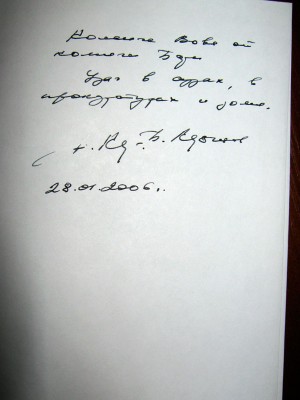 Коллеге Вове от
коллеги Бори
Удач в судах, в
прокуратурах и доме.
28.01.2006г.